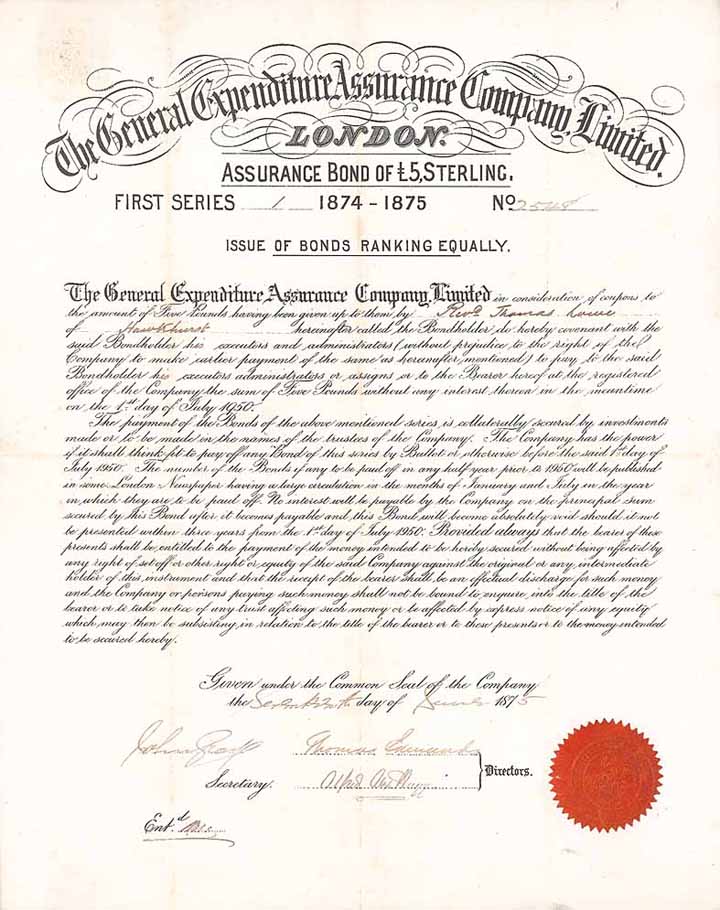 The General Expenditure Assurance Company, Limited.
LONDON.
ASSURANCE BOND OF £5, STERLING.
FIRST SERIES 1 1874 - 1875 No 2548
ISSUE OF BONDS RANKING EQUALLY.
The General Expenditure Assurance Company, Limited in consideration of coupons to
the amount of Five Pounds having been given up to them by Revd. Thomas Lowe
of Hawkhurst hereinafter called the Bondholder do hereby covenant with the
said Bondholder his executors and administrators (without prejudice to the right of the
Company to make earlier payment of the same as hereinafter mentioned) to pay to the said
Bondholder his executors administrators or assigns or to the Bearer hereof at the registered
office of the Company the sum of Five Pounds without any interest thereon in the meantime
on the 1st day of July 1950.
The payment of the Bonds of the above mentioned series is collaterally secured by investments
made or to be made in the names of the trustees of the Company. The Company has the power
if it shall think fit to pay off any Bond of this series by Ballot or otherwise before the said 1st day of
July 1950. The number of the Bonds if any to be paid off in any half year prior to 1950 will be published
in some London Newspaper having a large circulation in the months of January and July in the year
in which they are to be paid off. No interest will be payable by the Company on the principal sum
secured by this Bond after it becomes payable and this Bond will become absolutely void should it not
be presented within three years from the 1st day of July 1950. Provided always that the bearer of these
presents shall be entitled to the payment of the money intended to be hereby secured without being affected by
any right of set off or other right or equity of the said Company against the original or any intermediate
holder of this instrument and that the receipt of the bearer shall be an effectual discharge for such money
and the Company or persons paying such money shall not be bound to enquire into the title of the
bearer or to take notice of any trust affecting such money or be affected by express notice of any equity
which may then be subsisting in relation to the title of the bearer or to these presents or to the money intended
to be secured hereby.
Given under the Common Seal of the Company
the day of 1875
Thomas Edmunds
Secretary. Directors.
Entd.